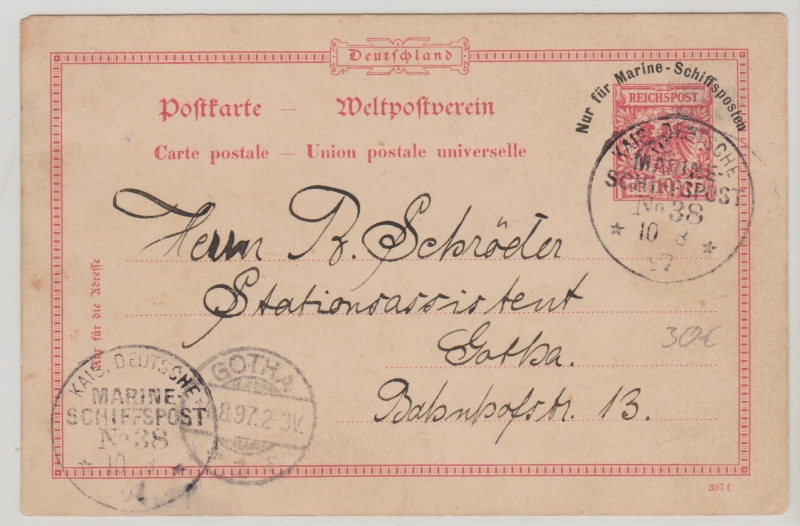 Deutschland
Nur für Marine-Schiffsposten
REICHSPOST
Postkarte — Weltpostverein
Carte postale — Union postale universelle
KAIS. DEUTSCHE
MARINE-
SCHIFFSPOST
No 38
* 10 8 *
97
Herrn R. Schröder
Stationsassistent
Gotha.
Bahnhofstr. 13.
30€
Nur für die Adresse
KAIS. DEUTSCHE
MARINE-
SCHIFFSPOST
No 38
* 10 *
GOTHA
8.97.2-3V.
397f